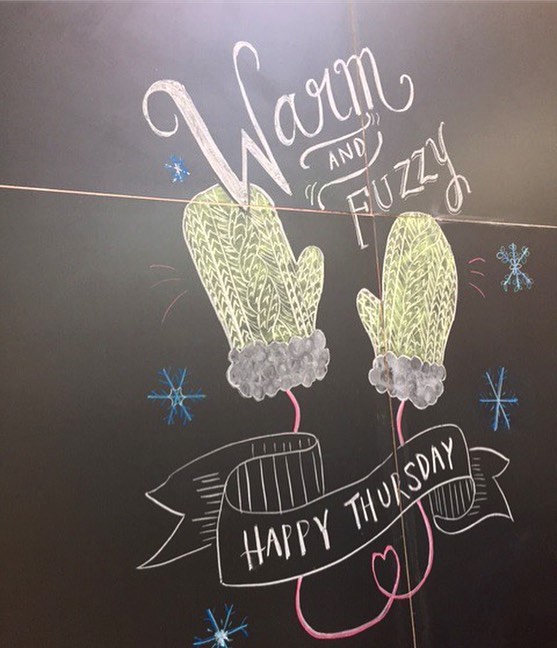 Warm
AND
FUZZY
HAPPY THURSDAY